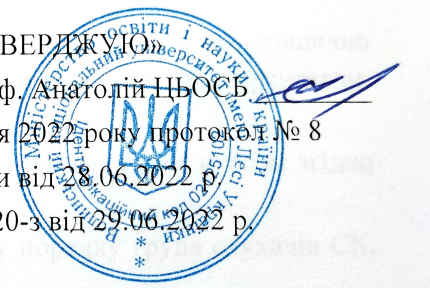 ВЕРДЖУЮ»
ф. Анатолій ЦЬОСЬ
я 2022 року протокол № 8
и від 28.06.2022 р.
20-з від 29.06.2022 р.
Міністерство освіти і науки України
Волинський національний університет імені Лесі Українки
Ідентифікаційний код 02125102